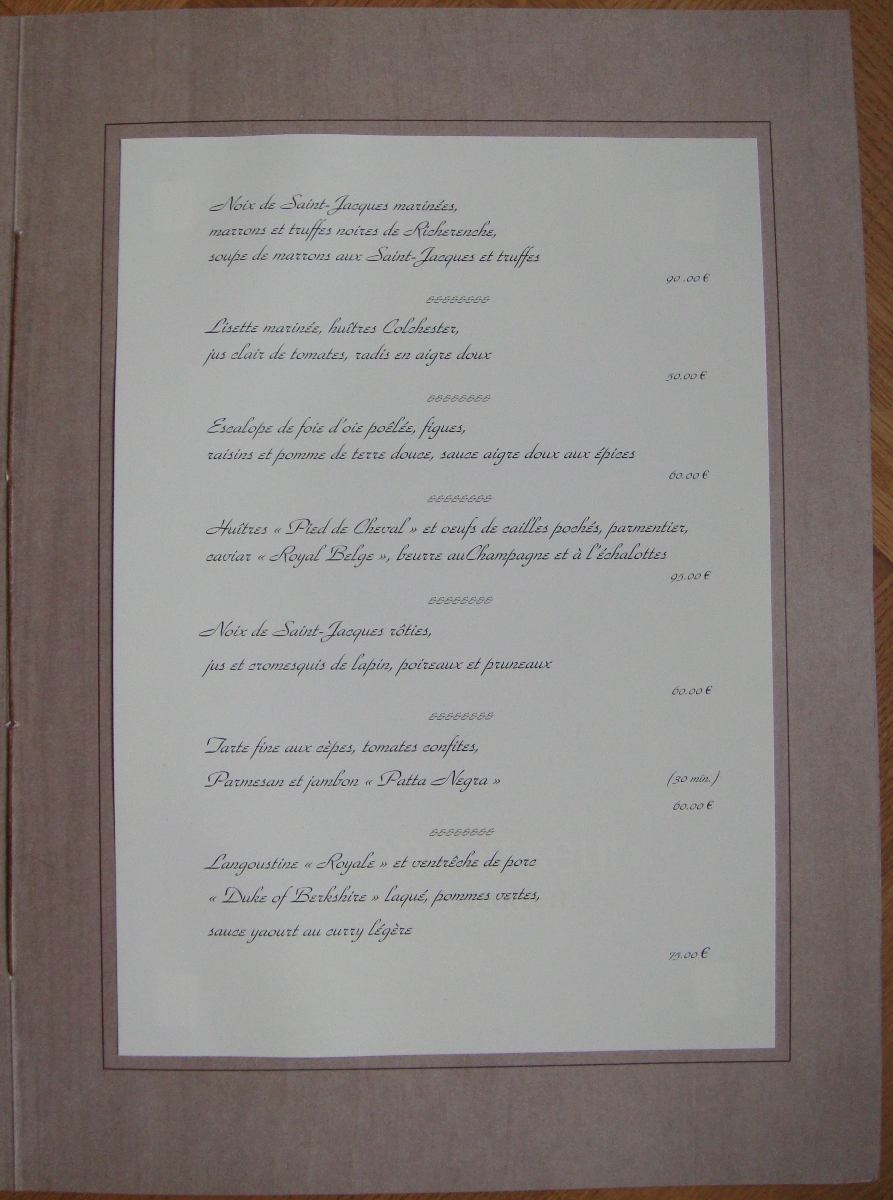 Noix de Saint-Jacques marinées,
marrons et truffes noires de Richerenche,
soupe de marrons aux Saint-Jacques et truffes
90.00 €
&&&&&&&&
Lisette marinée, huîtres Colchester,
jus clair de tomates, radis en aigre doux
50.00 €
&&&&&&&&
Escalope de foie d'oie poêlée, figues,
raisins et pomme de terre douce, sauce aigre doux aux épices
60.00 €
&&&&&&&&
Huîtres « Pied de Cheval » et oeufs de cailles pochés, parmentier,
caviar « Royal Belge », beurre au Champagne et à l'échalottes
95.00 €
&&&&&&&&
Noix de Saint-Jacques rôties,
jus et cromesquis de lapin, poireaux et pruneaux
60.00 €
&&&&&&&&
Tarte fine aux cèpes, tomates confites,
Parmesan et jambon « Patta Negra » (30 min.)
60.00 €
&&&&&&&&
Langoustine « Royale » et ventrêche de porc
« Duke of Berkshire » laqué, pommes vertes,
sauce yaourt au curry légère
75.00 €